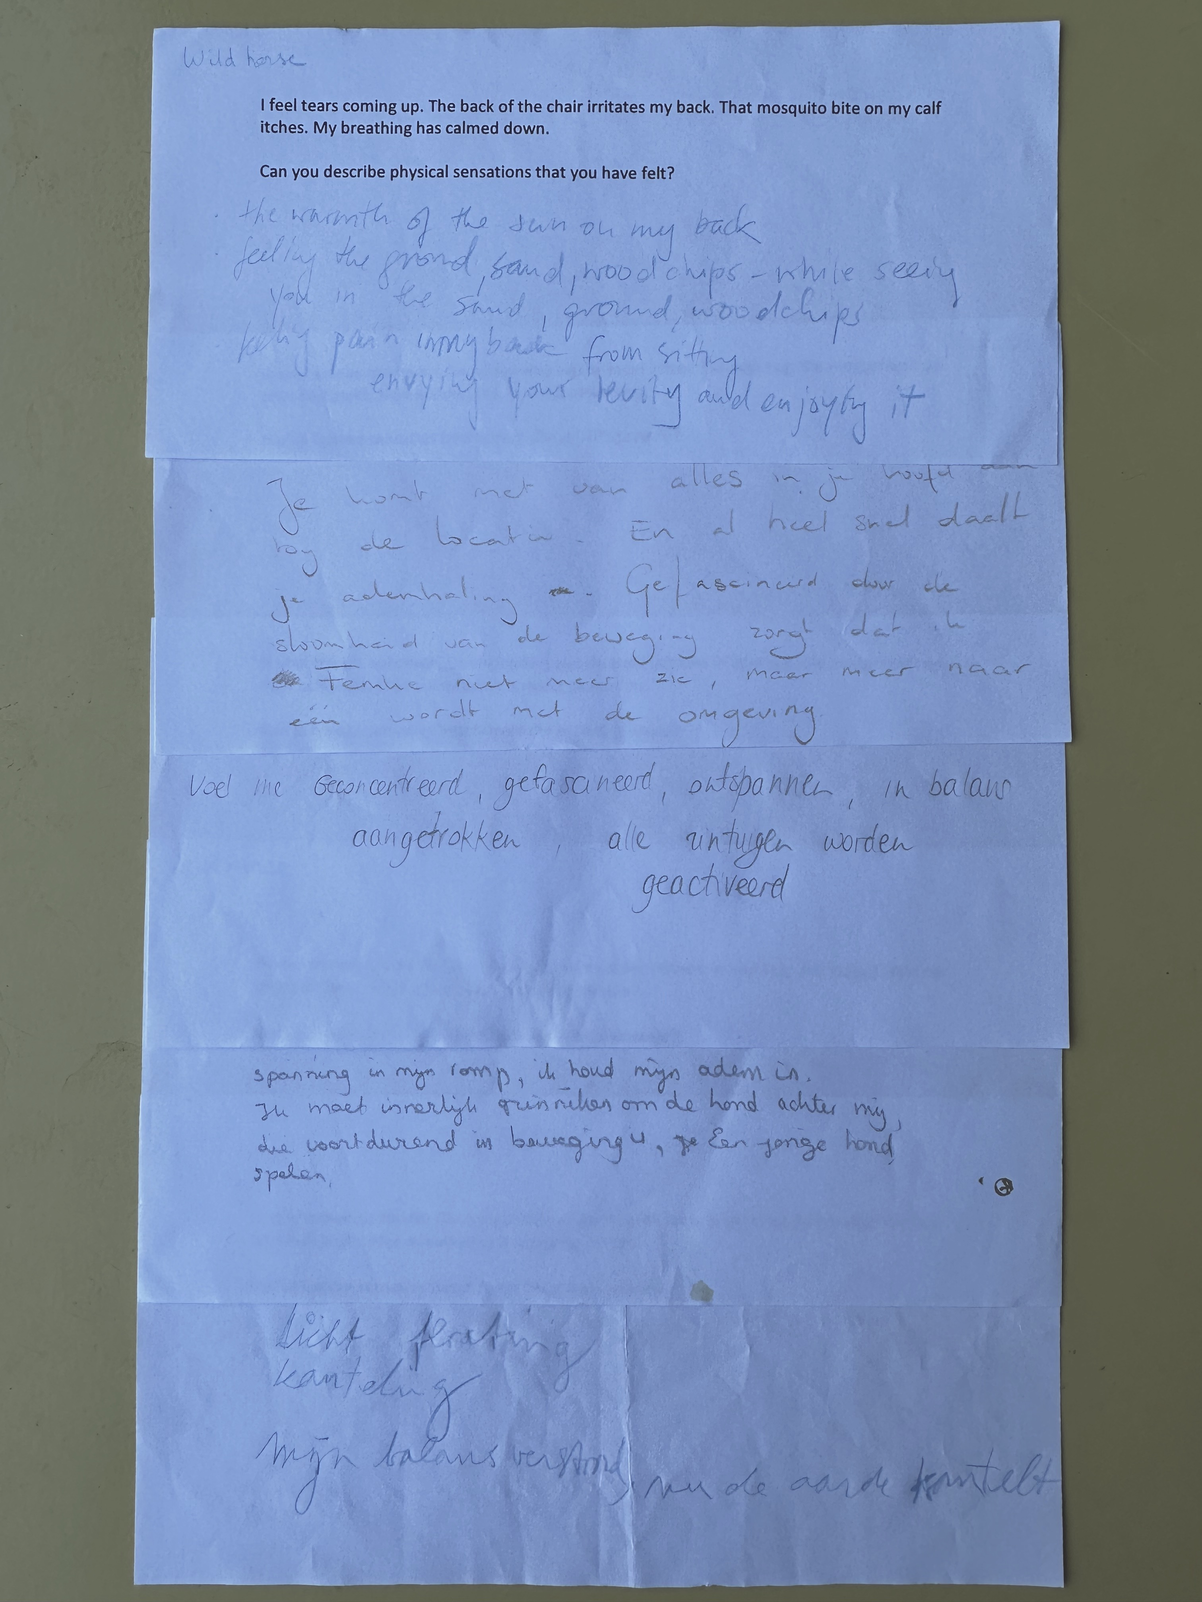 Wild horse
I feel tears coming up. The back of the chair irritates my back. That mosquito bite on my calf
itches. My breathing has calmed down.
Can you describe physical sensations that you have felt?
· the warmth of the sun on my back
· feeling the ground, sand, woodchips - while seeing
you in the sand, ground, woodchips
· pain in my back from sitting
envying your levity and enjoying it
Je komt met van alles in je hoofd aan
bij de locatie. En al heel snel daalt
je ademhaling. Gefascineerd door de
sloomheid van de beweging zorgt dat ik
Femke niet meer zie, maar meer naar
één wordt met de omgeving
Voel me Geconcentreerd, gefascineerd, ontspannen, in balans
aangetrokken, alle zintuigen worden
geactiveerd
spanning in mijn romp, ik houd mijn adem in.
Ik moet innerlijk grinniken om de hond achter mij,
die voortdurend in beweging is, Een jonge hond,
spelen.
Licht
kanteling
Mijn balans verstoord, nu de aarde kantelt